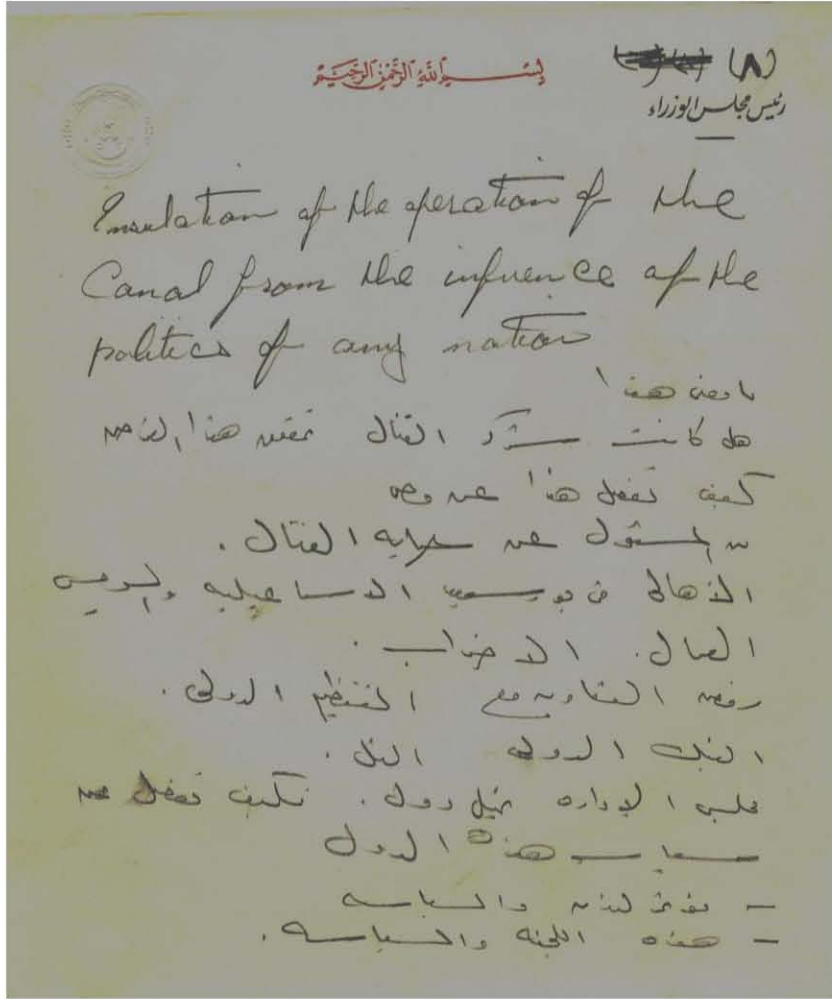 (٨)
بسم الله الرحمن الرحيم
رئيس مجلس الوزراء
Insulation of the operation of the
Canal from the influence of the
politics of any nation
ما معنى هذا
هل كانت شركة القنال تحقق هذا الغرض
كيف تفصل هذا عن
من المسئول عن حماية القنال .
الأهالى فى بورسعيد الاسماعيليه والسويس
العمال . الاضراب .
رفض التعاون مع التنظيم الدولى .
البنك الدولى
مجلس الإداره يمثل دول . فكيف تفصل عن
سياسه هذه الدول
– مؤتمر لندن والسياسه
– هذه اللجنه والسياسه .